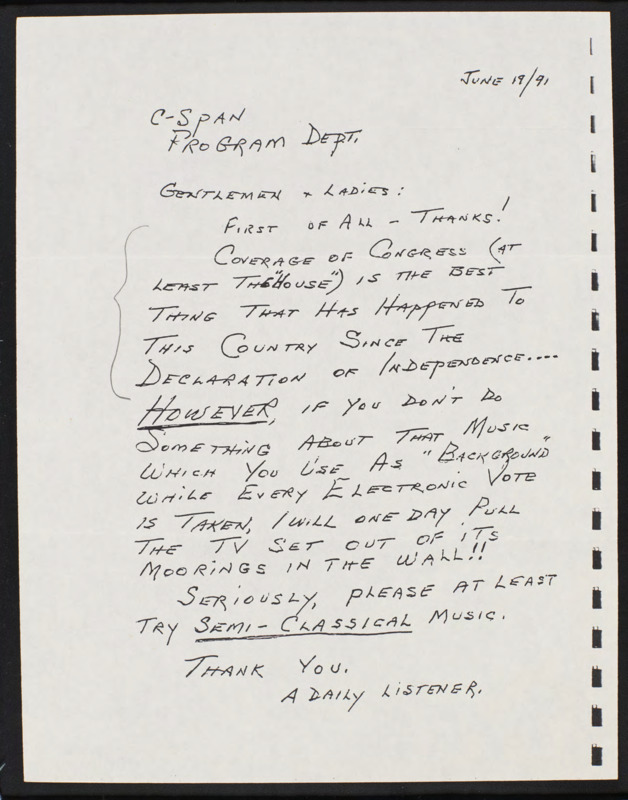 JUNE 19/91
C-SPAN
PROGRAM DEPT.
GENTLEMEN & LADIES:
FIRST OF ALL - THANKS!
COVERAGE OF CONGRESS (AT
LEAST THE "HOUSE") IS THE BEST
THING THAT HAS HAPPENED TO
THIS COUNTRY SINCE THE
DECLARATION OF INDEPENDENCE....
HOWEVER, IF YOU DON'T DO
SOMETHING ABOUT THAT MUSIC
WHICH YOU USE AS "BACKGROUND"
WHILE EVERY ELECTRONIC VOTE
IS TAKEN, I WILL ONE DAY PULL
THE TV SET OUT OF ITS
MOORINGS IN THE WALL!!
SERIOUSLY, PLEASE AT LEAST
TRY SEMI-CLASSICAL MUSIC.
THANK YOU.
A DAILY LISTENER.